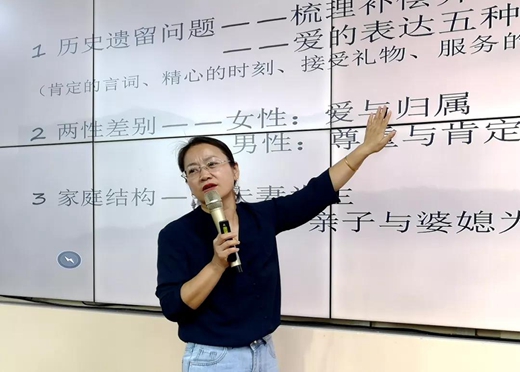 1 历史遗留问题——梳理补偿
——爱的表达五种
（肯定的言词、精心的时刻、接受礼物、服务的
2 两性差别——女性：爱与归属
男性：尊重与肯定
3 家庭结构—夫妻为主
亲子与婆媳为